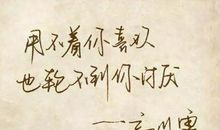 用不着你喜欢
也轮不到你讨厌